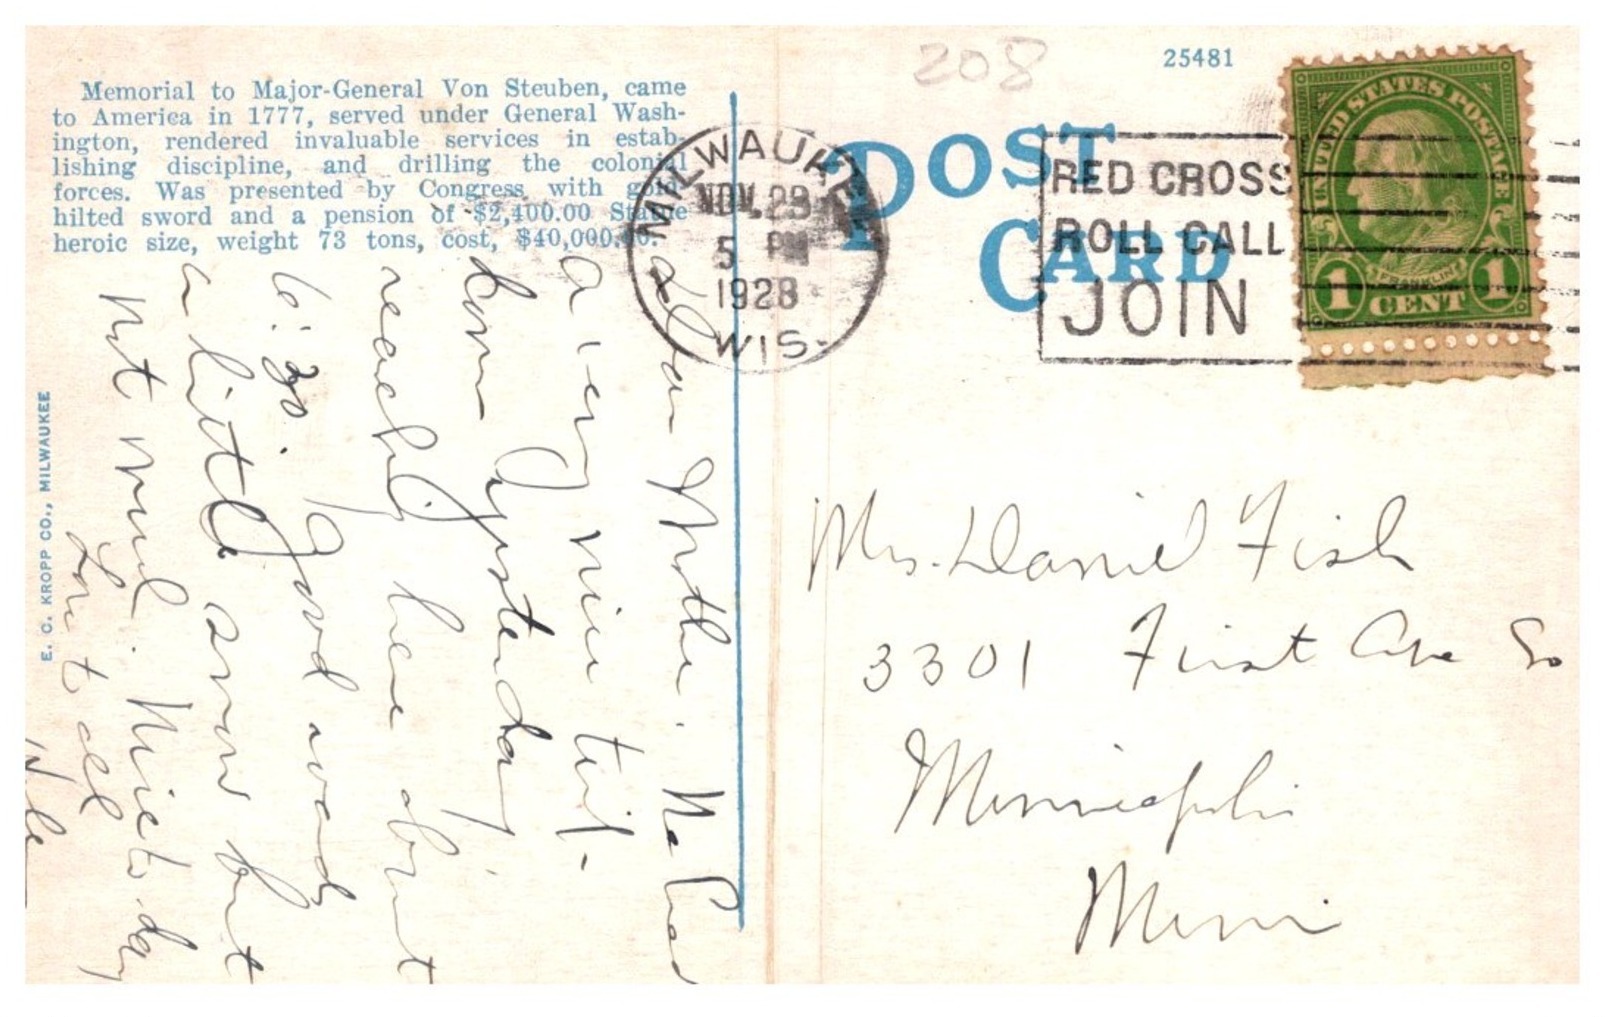 Memorial to Major-General Von Steuben, came
to America in 1777, served under General Wash-
ington, rendered invaluable services in estab-
lishing discipline, and drilling the colonial
forces. Was presented by Congress with gold-
hilted sword and a pension of $2,400.00 Statue
heroic size, weight 73 tons, cost, $40,000.00.
Dear Mother. We had
a very nice trip-
down yesterday.
reached here about
6:30 Good roads
a little snow but
not much. Nice to-day
Love to all
E. C. KROPP CO., MILWAUKEE
208
25481
POST
CARD
MILWAUKEE
NOV. 23
5 PM
1928
WIS.
RED CROSS
ROLL CALL
JOIN
UNITED STATES POSTAGE
FRANKLIN
1 CENT 1
Mrs. Daniel Fish
3301 First Ave So
Minneapolis
Minn